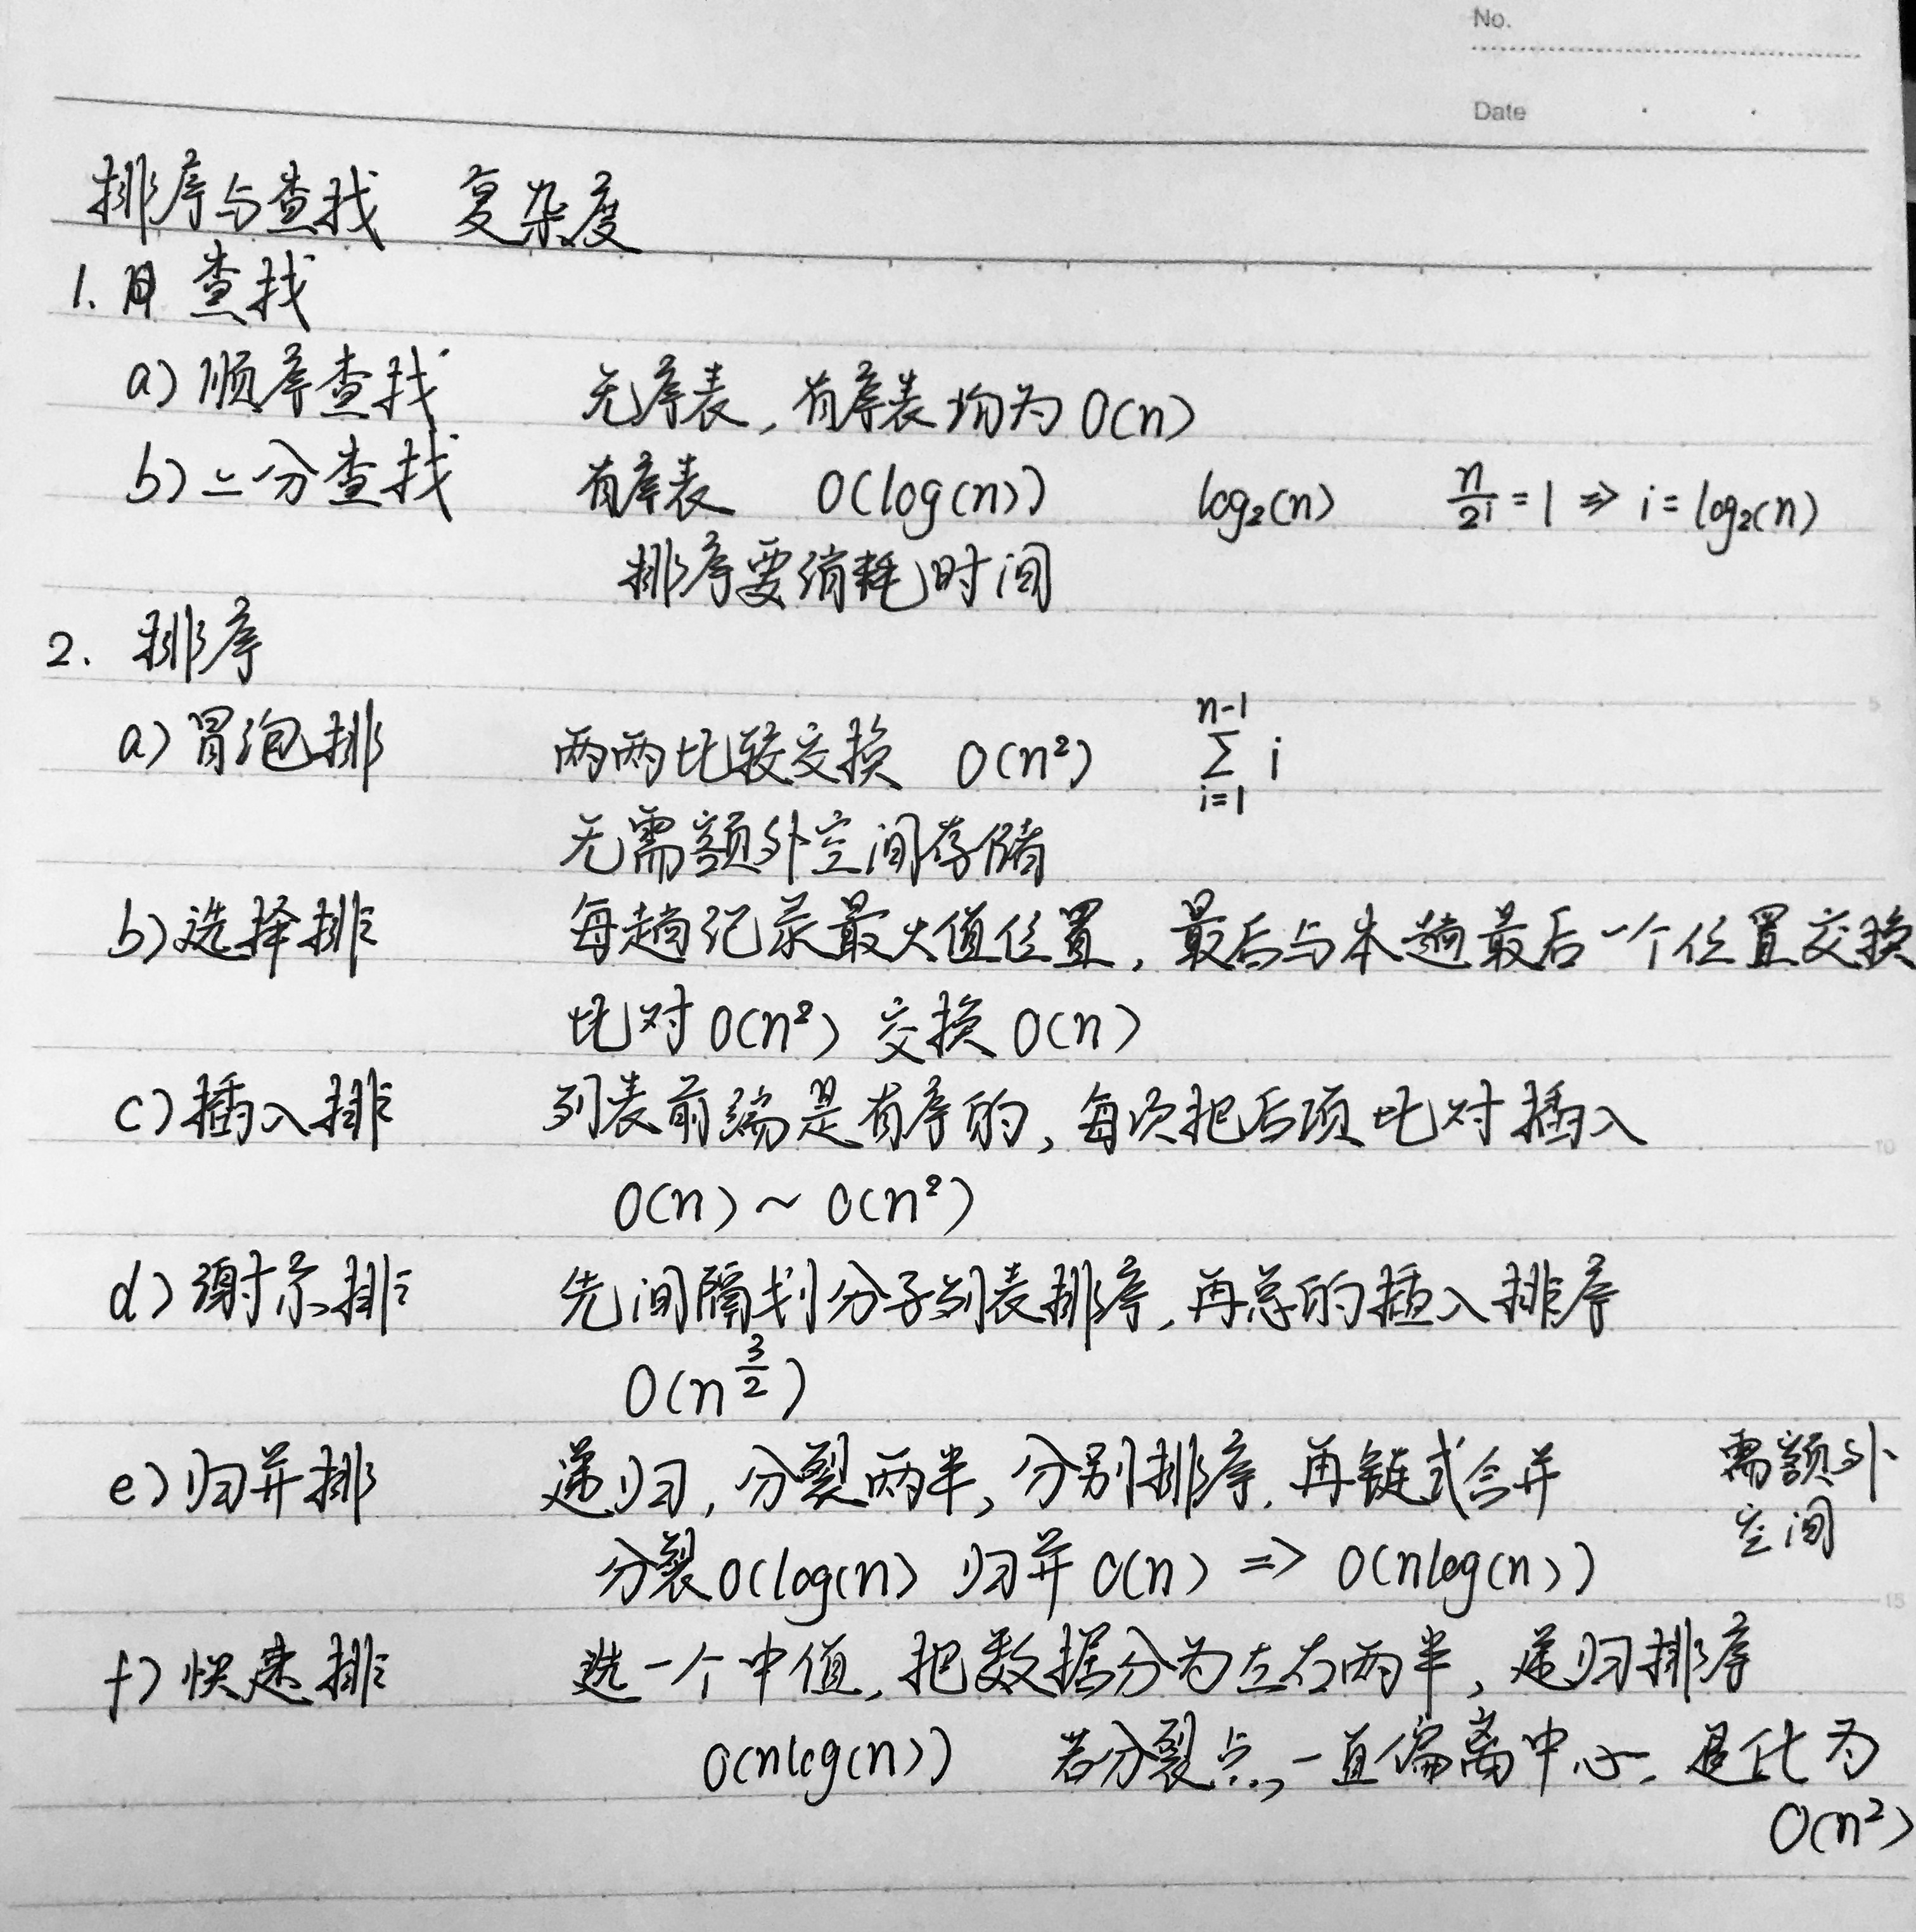 No.
Date
排序与查找 复杂度
1. 查找
a) 顺序查找 无序表, 有序表均为 O(n)
b) 二分查找 有序表 O(log(n)) log₂(n) n/2ⁱ = 1 ⇒ i = log₂(n)
排序要消耗时间
2. 排序
5
a) 冒泡排 两两比较交换 O(n²) ∑_{i=1}^{n-1} i
无需额外空间存储
b) 选择排 每趟记录最大值位置, 最后与本趟最后一个位置交换
比对 O(n²) 交换 O(n)
c) 插入排 列表前端是有序的, 每次把后项比对插入
10
O(n) ~ O(n²)
d) 谢尔排 先间隔划分子列表排序, 再总的插入排序
O(n^{3/2})
e) 归并排 递归, 分裂两半, 分别排序, 再链式合并 需额外
空间
分裂 O(log(n) 归并 O(n) ⇒ O(nlog(n))
15
f) 快速排 选一个中值, 把数据分为左右两半, 递归排序
O(nlog(n)) 若分裂点, 一直偏离中心, 退化为
O(n²)